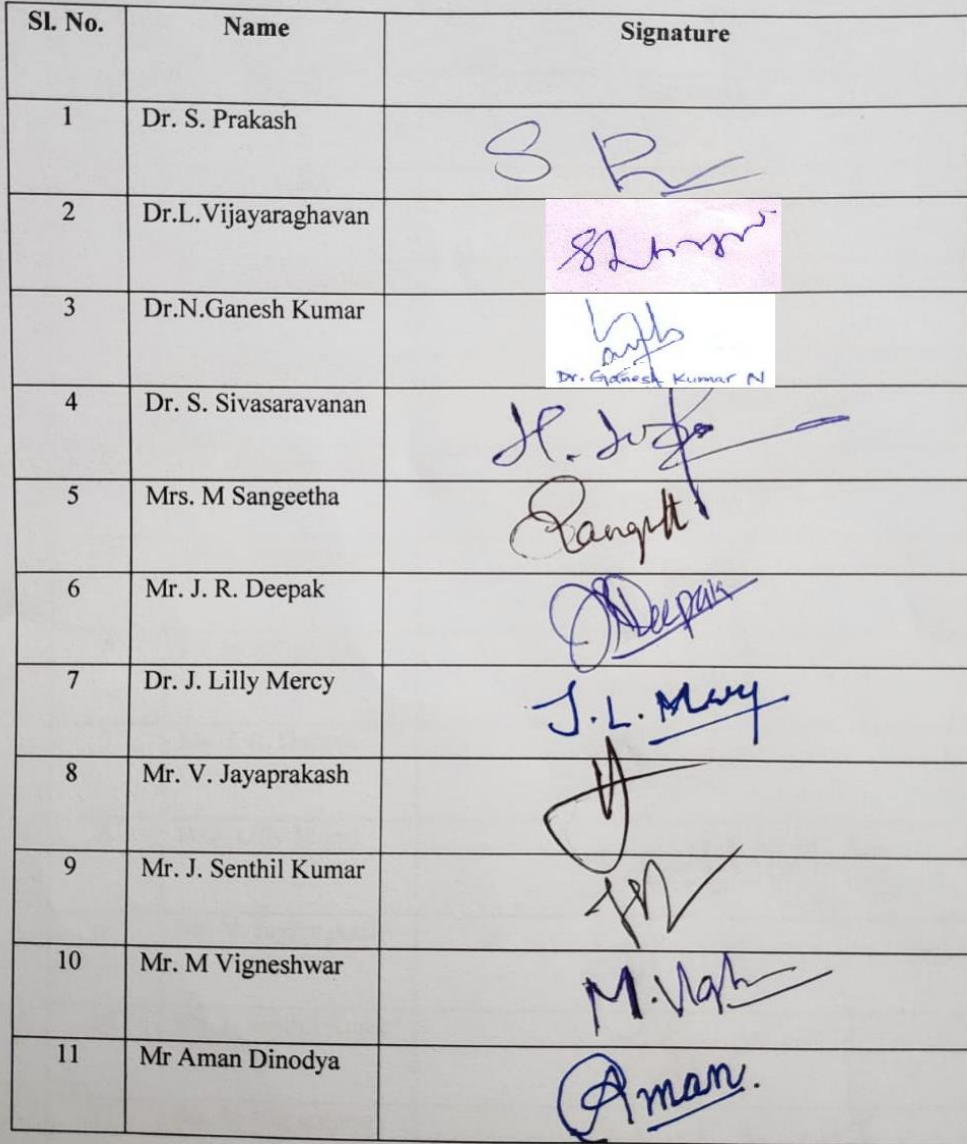 Sl. No. Name Signature
1 Dr. S. Prakash S
2 Dr.L.Vijayaraghavan
3 Dr.N.Ganesh Kumar
Dr. Ganesh Kumar N
4 Dr. S. Sivasaravanan
5 Mrs. M Sangeetha
6 Mr. J. R. Deepak Deepak
7 Dr. J. Lilly Mercy J.L. Mercy
8 Mr. V. Jayaprakash
9 Mr. J. Senthil Kumar
10 Mr. M Vigneshwar
11 Mr Aman Dinodya Aman.